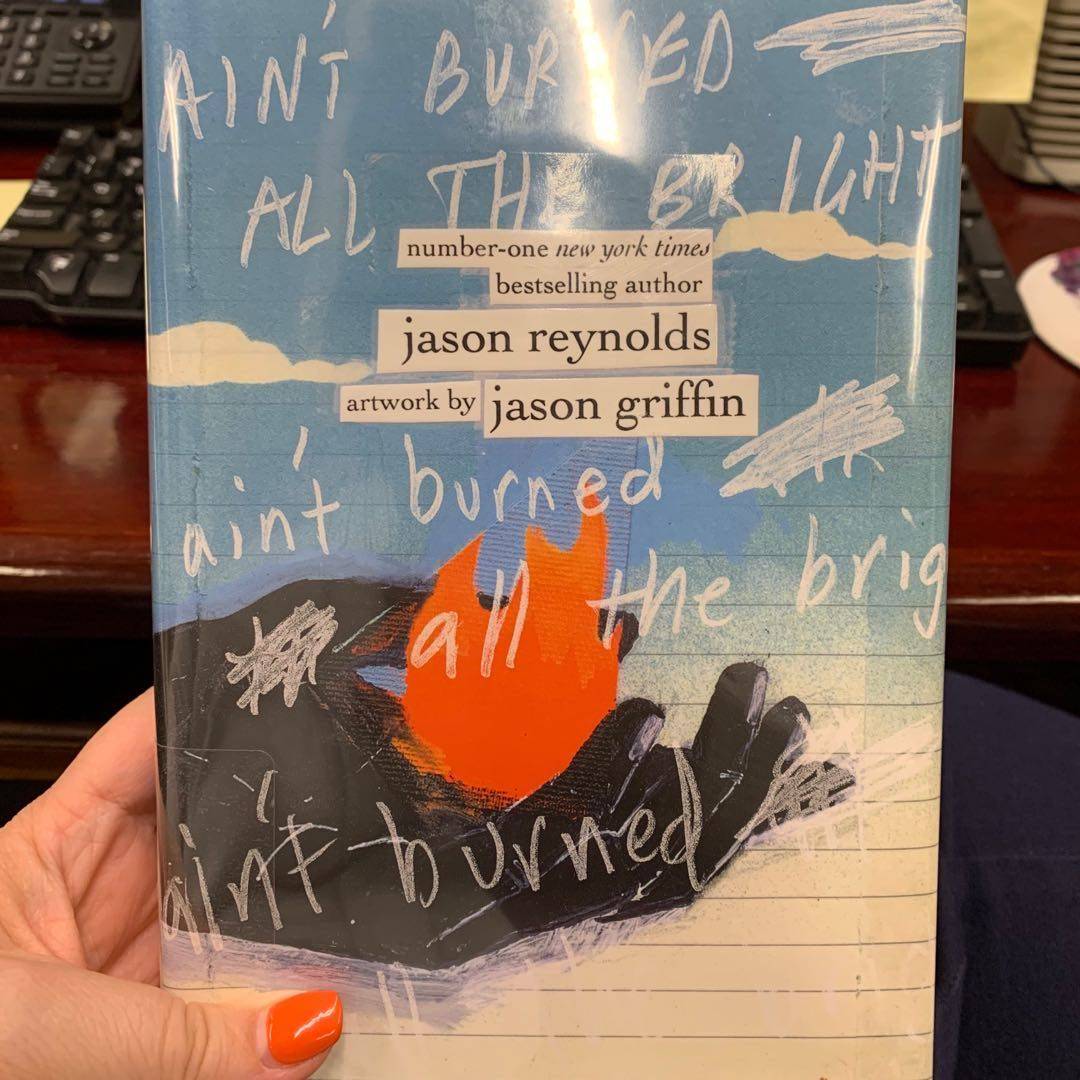 AIN'T BURNED
ALL THE BRIGHT
number-one new york times
bestselling author
jason reynolds
artwork by jason griffin
ain't burned
all the brig
ain't burned